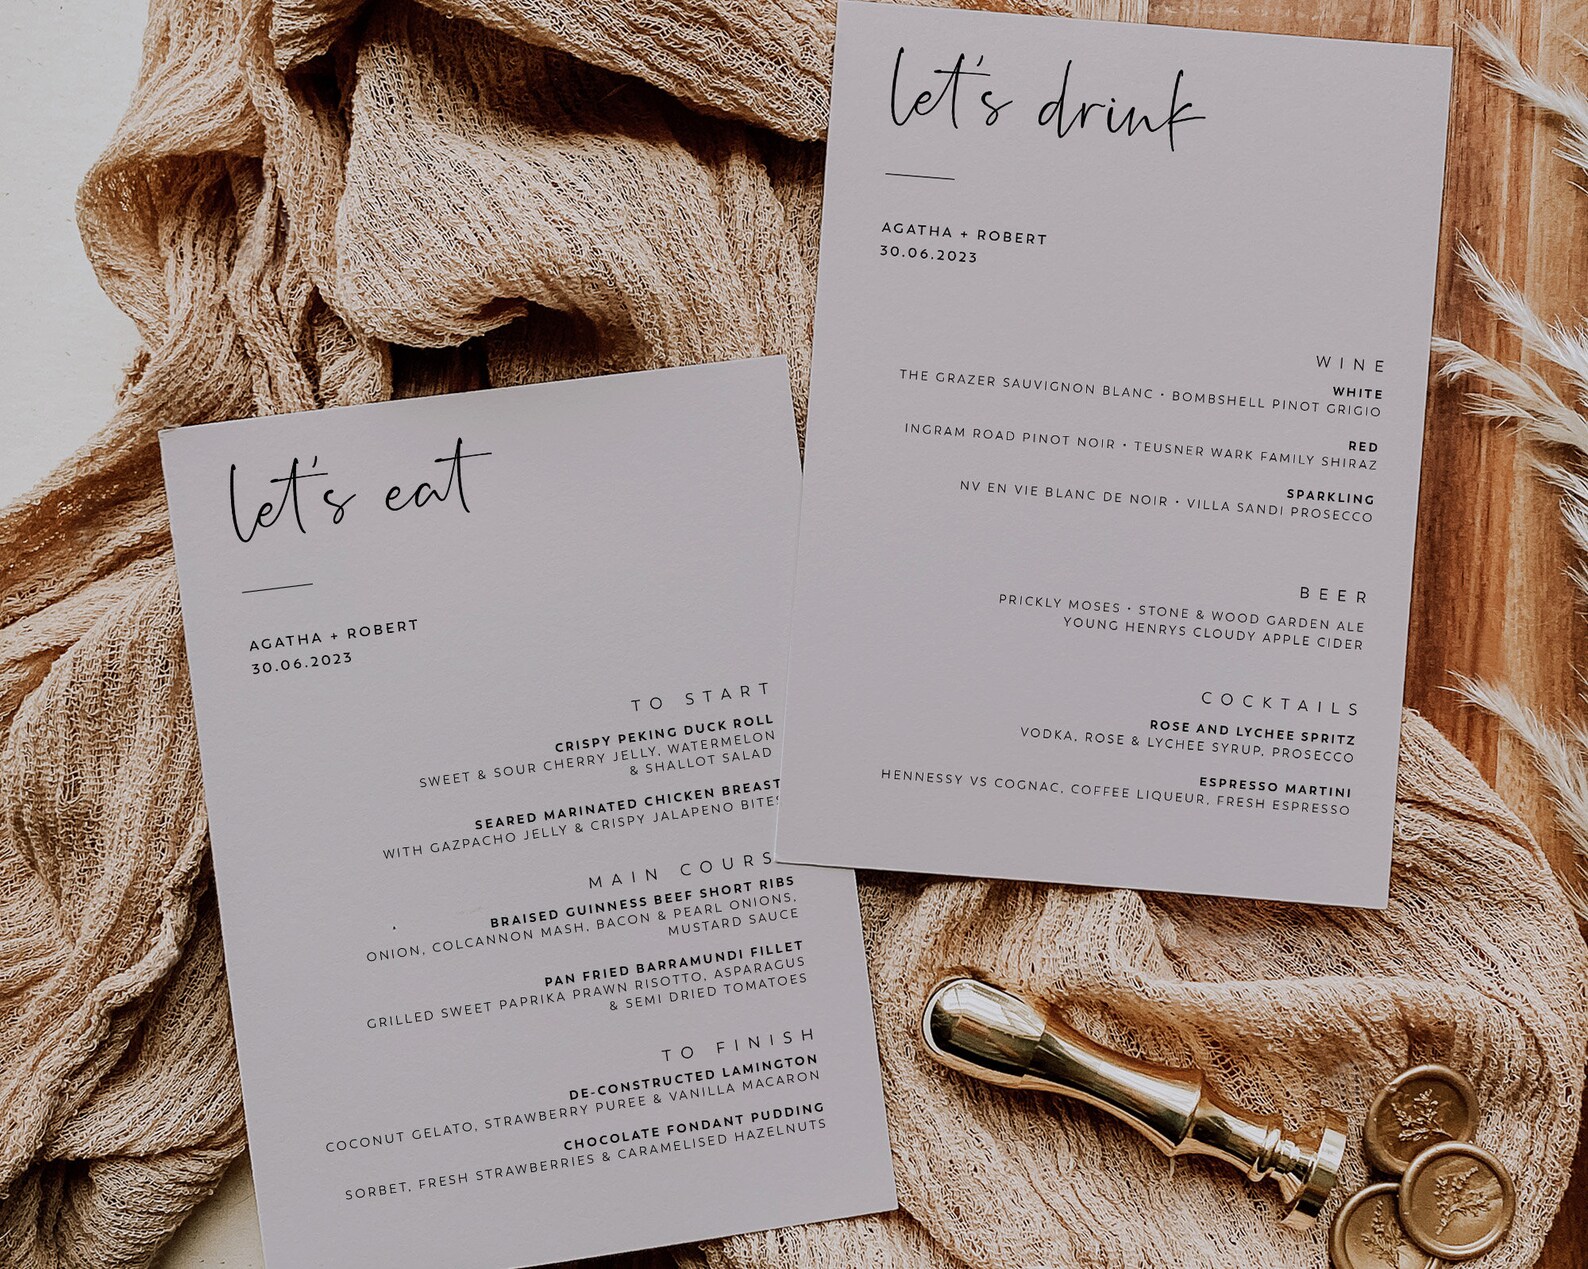 let's eat
AGATHA + ROBERT
30.06.2023
TO START
CRISPY PEKING DUCK ROLL
SWEET & SOUR CHERRY JELLY, WATERMELON
& SHALLOT SALAD
SEARED MARINATED CHICKEN BREAST
WITH GAZPACHO JELLY & CRISPY JALAPENO BITES
MAIN COURS
BRAISED GUINNESS BEEF SHORT RIBS
ONION, COLCANNON MASH, BACON & PEARL ONIONS,
MUSTARD SAUCE
PAN FRIED BARRAMUNDI FILLET
GRILLED SWEET PAPRIKA PRAWN RISOTTO, ASPARAGUS
& SEMI DRIED TOMATOES
TO FINISH
DE-CONSTRUCTED LAMINGTON
COCONUT GELATO, STRAWBERRY PUREE & VANILLA MACARON
CHOCOLATE FONDANT PUDDING
SORBET, FRESH STRAWBERRIES & CARAMELISED HAZELNUTS
let's drink
AGATHA + ROBERT
30.06.2023
WINE
WHITE
THE GRAZER SAUVIGNON BLANC • BOMBSHELL PINOT GRIGIO
RED
INGRAM ROAD PINOT NOIR • TEUSNER WARK FAMILY SHIRAZ
SPARKLING
NV EN VIE BLANC DE NOIR • VILLA SANDI PROSECCO
BEER
PRICKLY MOSES • STONE & WOOD GARDEN ALE
YOUNG HENRYS CLOUDY APPLE CIDER
COCKTAILS
ROSE AND LYCHEE SPRITZ
VODKA, ROSE & LYCHEE SYRUP, PROSECCO
ESPRESSO MARTINI
HENNESSY VS COGNAC, COFFEE LIQUEUR, FRESH ESPRESSO